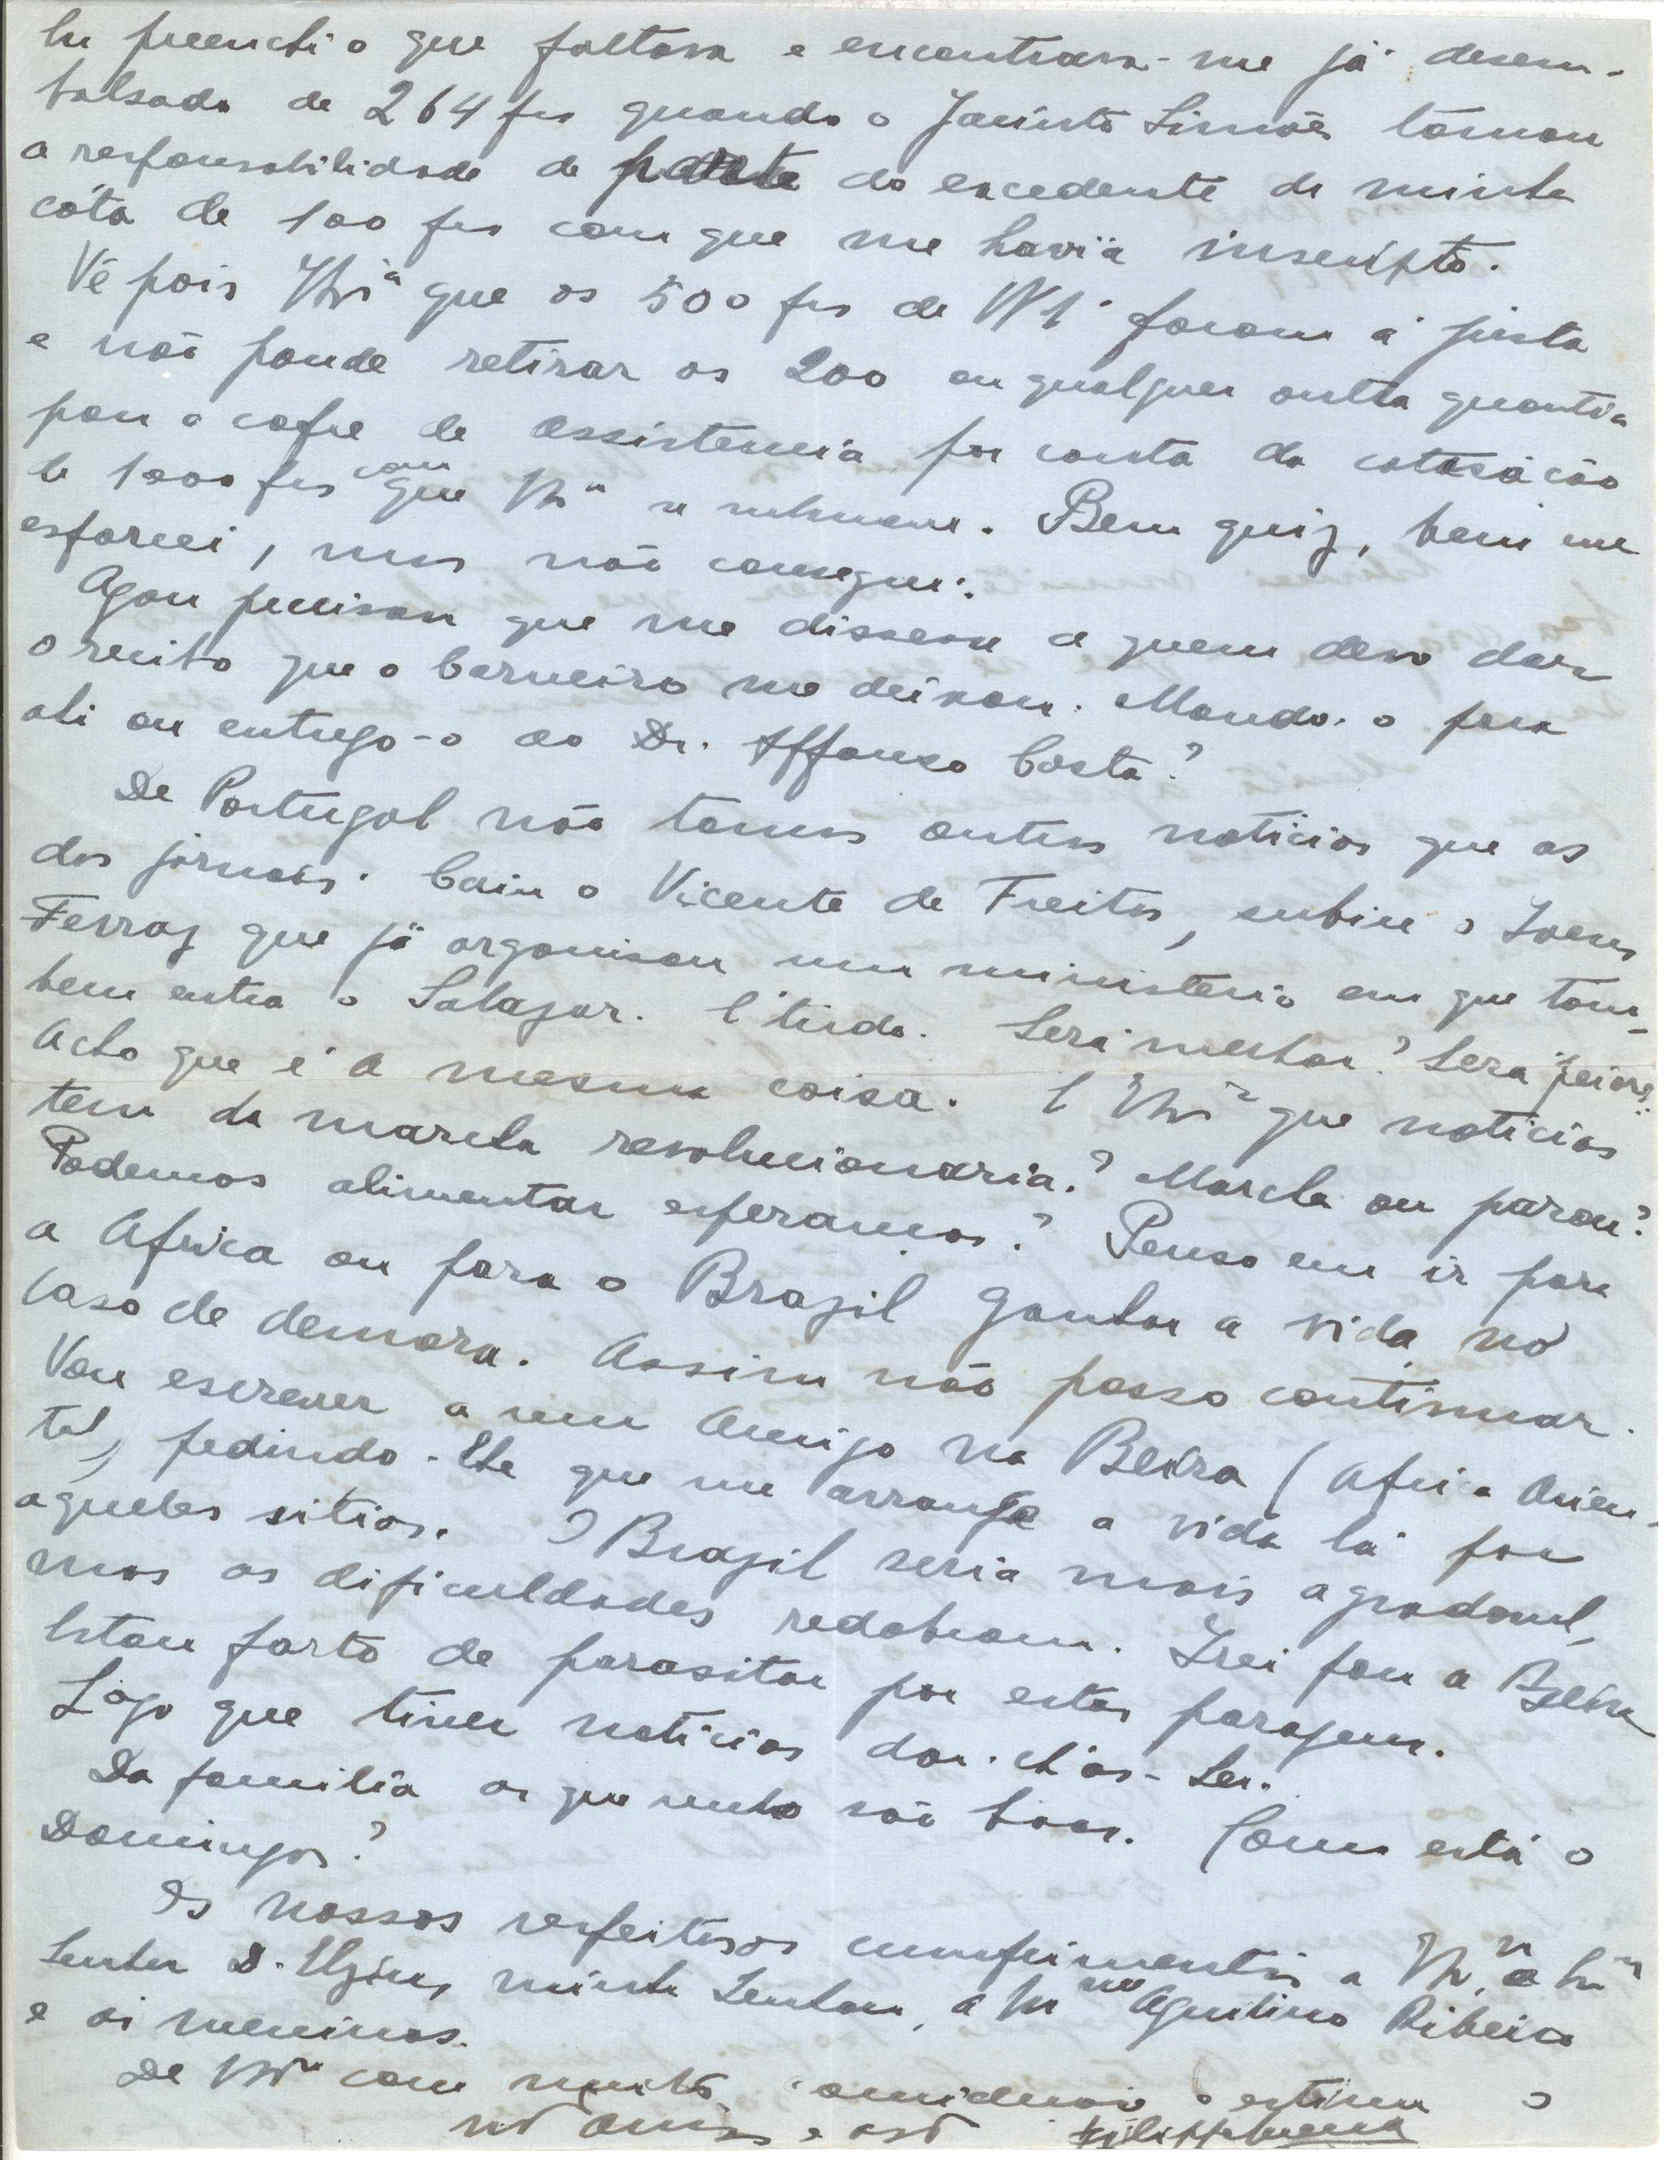 Eu preenchi o que faltava e encontrava-me já desem-
bolsado de 264 frs quando o Jacinto Simões tomou
a responsabilidade de parte do excedente da minha
cóta de 100 frs com que me havia inscripto.
Vê pois V. Exª que os 500 frs de foram á justa
e não poude retirar os 200 ou qualquer outra quantia
para o cofre de assistencia por conta da cotisação
de 1000 frs com que V. Exª se subscreveu. Bem quiz, bem me
esforcei, mas não consegui.
Agora precisava que me dissesse a quem devo dar
o recibo que o Carneiro me deixou. Mando-o para
ahi ou entrego-o ao Dr. Affonso Costa?
De Portugal não temos outras noticias que as
dos jornaes. Caiu o Vicente de Freitas, subiu o Ivens
Ferraz que já organisou um ministerio em que tam-
bem entra o Salazar. E' tudo. Será melhor? Será peior?
Acho que é a mesma coisa. E V. Exª que noticias
tem da marcha revolucionaria? Marcha ou parou?
Podemos alimentar esperanças? Penso em ir para
a Africa ou para o Brazil ganhar a vida no
caso de demora. Assim não posso continuar.
Vou escrever a um amigo na Beira (Africa Orien-
tal), pedindo-lhe que me arranje a vida lá por
aqueles sitios. O Brazil seria mais agradavel,
mas as dificuldades redobram. Irei para a Beira
Estou farto de parasitar por estas paragens.
Logo que tiver noticias dar-lh'as-hei.
Da familia as que tenho são boas. Como está o
Domingos?
Os nossos respeitosos cumprimentos a V. Exª, a
Senhora D. Elzira, minha Senhora, a Mme Aquilino Ribeiro
e os meninos.
De V. Exª com muita consideração e estima o